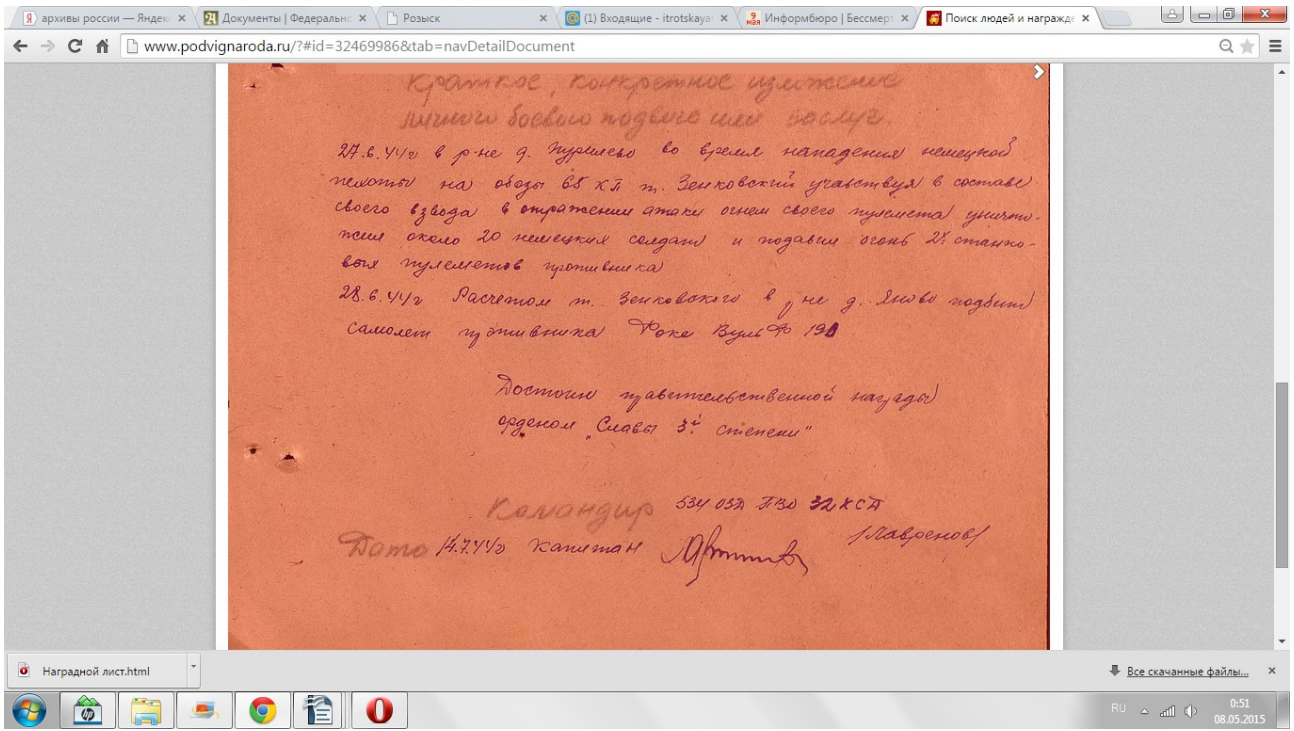 архивы россии — Яндек
Документы | Федеральн
Розыск
(1) Входящие - itrotskaya
Информбюро | Бессмерт
Поиск людей и награжде
www.podvignaroda.ru/?#id=32469986&tab=navDetailDocument
Краткое, конкретное изложение
личного боевого подвига или заслуг.
27.6.44г в р-не д. во время нападения немецкой
пехоты на обозы т. Зенковский участвуя в составе
своего взвода в отражении атаки огнем своего пулемета уничто-
жил около 20 немецких солдат и подавил огонь 2х станко-
вых пулеметов противника
28.6.44г Расчетом т. Зенковского в р-не д. Яново подбит
самолет противника Фоке Вульф 190
Достоин правительственной награды
орденом „Славы 3й степени"
Командир 534 ПВО 32 КСД
Дата 14.7.44г капитан /Лавренов/
Наградной лист.html
Все скачанные файлы...
RU
0:51
08.05.2015